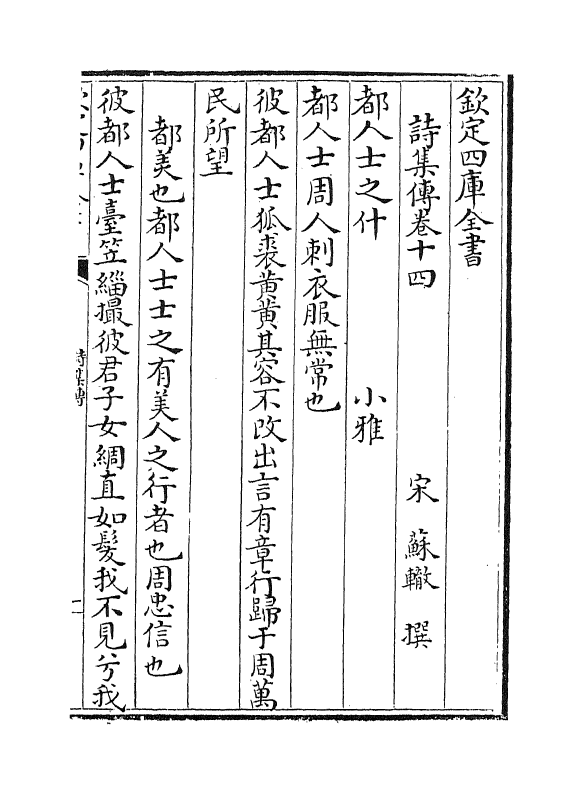 欽定四庫全書
詩集傳卷十四
宋 蘇轍 撰
都人士之什
小雅
都人士周人刺衣服無常也
彼都人士狐裘黃黃其容不改出言有章行歸于周萬
民所望
都美也都人士士之有美人之行者也周忠信也
彼都人士臺笠緇撮彼君子女綢直如髮我不見兮我